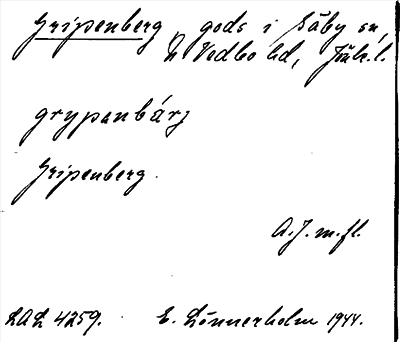 Gripenberg, gods i Säby sn,
N Vedbo hd, Jönk.l.
grypenbárj
Gripenberg.
A.J. m.fl.
LAL 4259. E. Lönnerholm 1944.